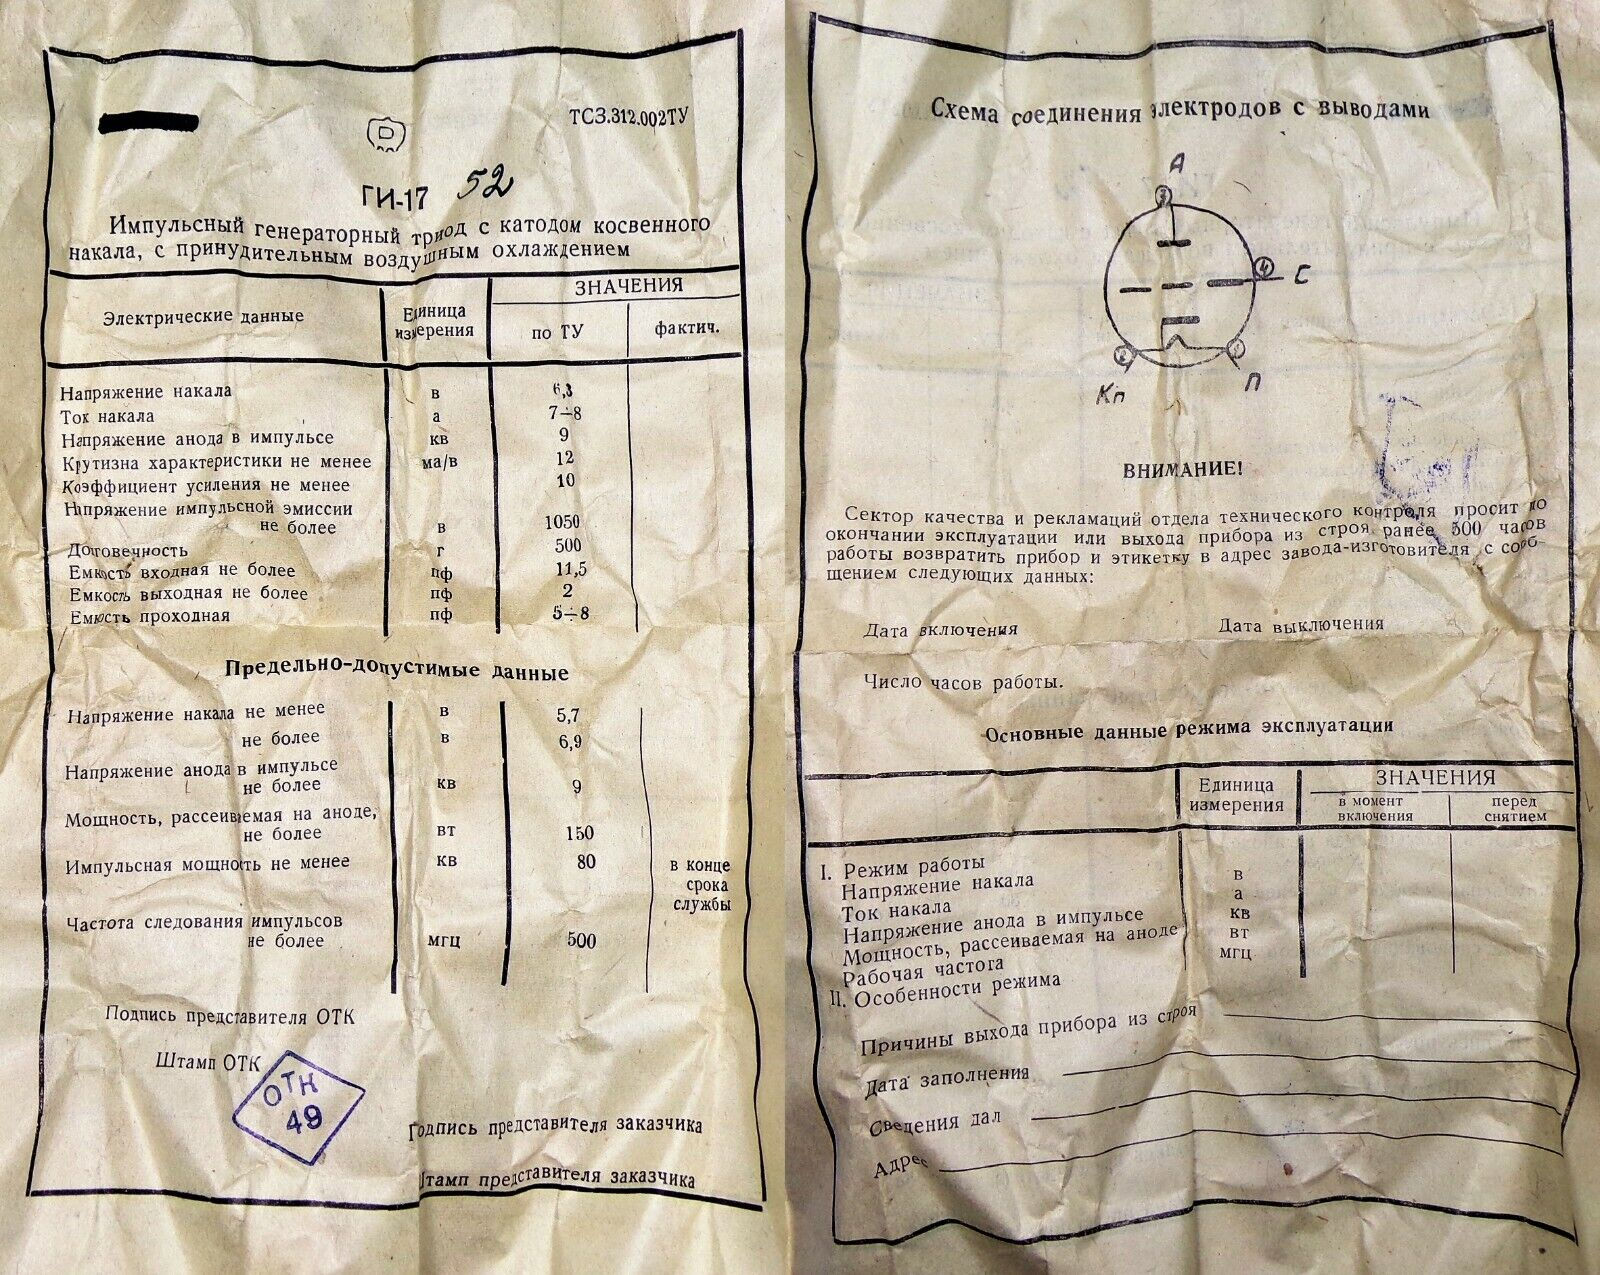 ТС3.312.002ТУ
Р
ГИ-17 52
Импульсный генераторный триод с катодом косвенного
накала, с принудительным воздушным охлаждением
Электрические данные
Единица
измерения
ЗНАЧЕНИЯ
по ТУ
фактич.
Напряжение накала в 6,3
Ток накала а 7÷8
Напряжение анода в импульсе кв 9
Крутизна характеристики не менее ма/в 12
Коэффициент усиления не менее 10
Напряжение импульсной эмиссии
не более в 1050
Долговечность г 500
Емкость входная не более пф 11,5
Емкость выходная не более пф 2
Емкость проходная пф 5÷8
Предельно-допустимые данные
Напряжение накала не менее в 5,7
не более в 6,9
Напряжение анода в импульсе
не более кв 9
Мощность, рассеиваемая на аноде,
не более вт 150
Импульсная мощность не менее кв 80 в конце
срока
службы
Частота следования импульсов
не более мгц 500
Подпись представителя ОТК
Штамп ОТК
ОТК
49
Подпись представителя заказчика
Штамп представителя заказчика
Схема соединения электродов с выводами
А
3
4
С
2
1
Кп
П
ВНИМАНИЕ!
Сектор качества и рекламаций отдела технического контроля просит по
окончании эксплуатации или выхода прибора из строя ранее 500 часов
работы возвратить прибор и этикетку в адрес завода-изготовителя с сооб-
щением следующих данных:
Дата включения Дата выключения
Число часов работы.
Основные данные режима эксплуатации
Единица
измерения
ЗНАЧЕНИЯ
в момент
включения
перед
снятием
I. Режим работы
Напряжение накала в
Ток накала а
Напряжение анода в импульсе кв
Мощность, рассеиваемая на аноде вт
Рабочая частота мгц
II. Особенности режима
Причины выхода прибора из строя
Дата заполнения
Сведения дал
Адрес